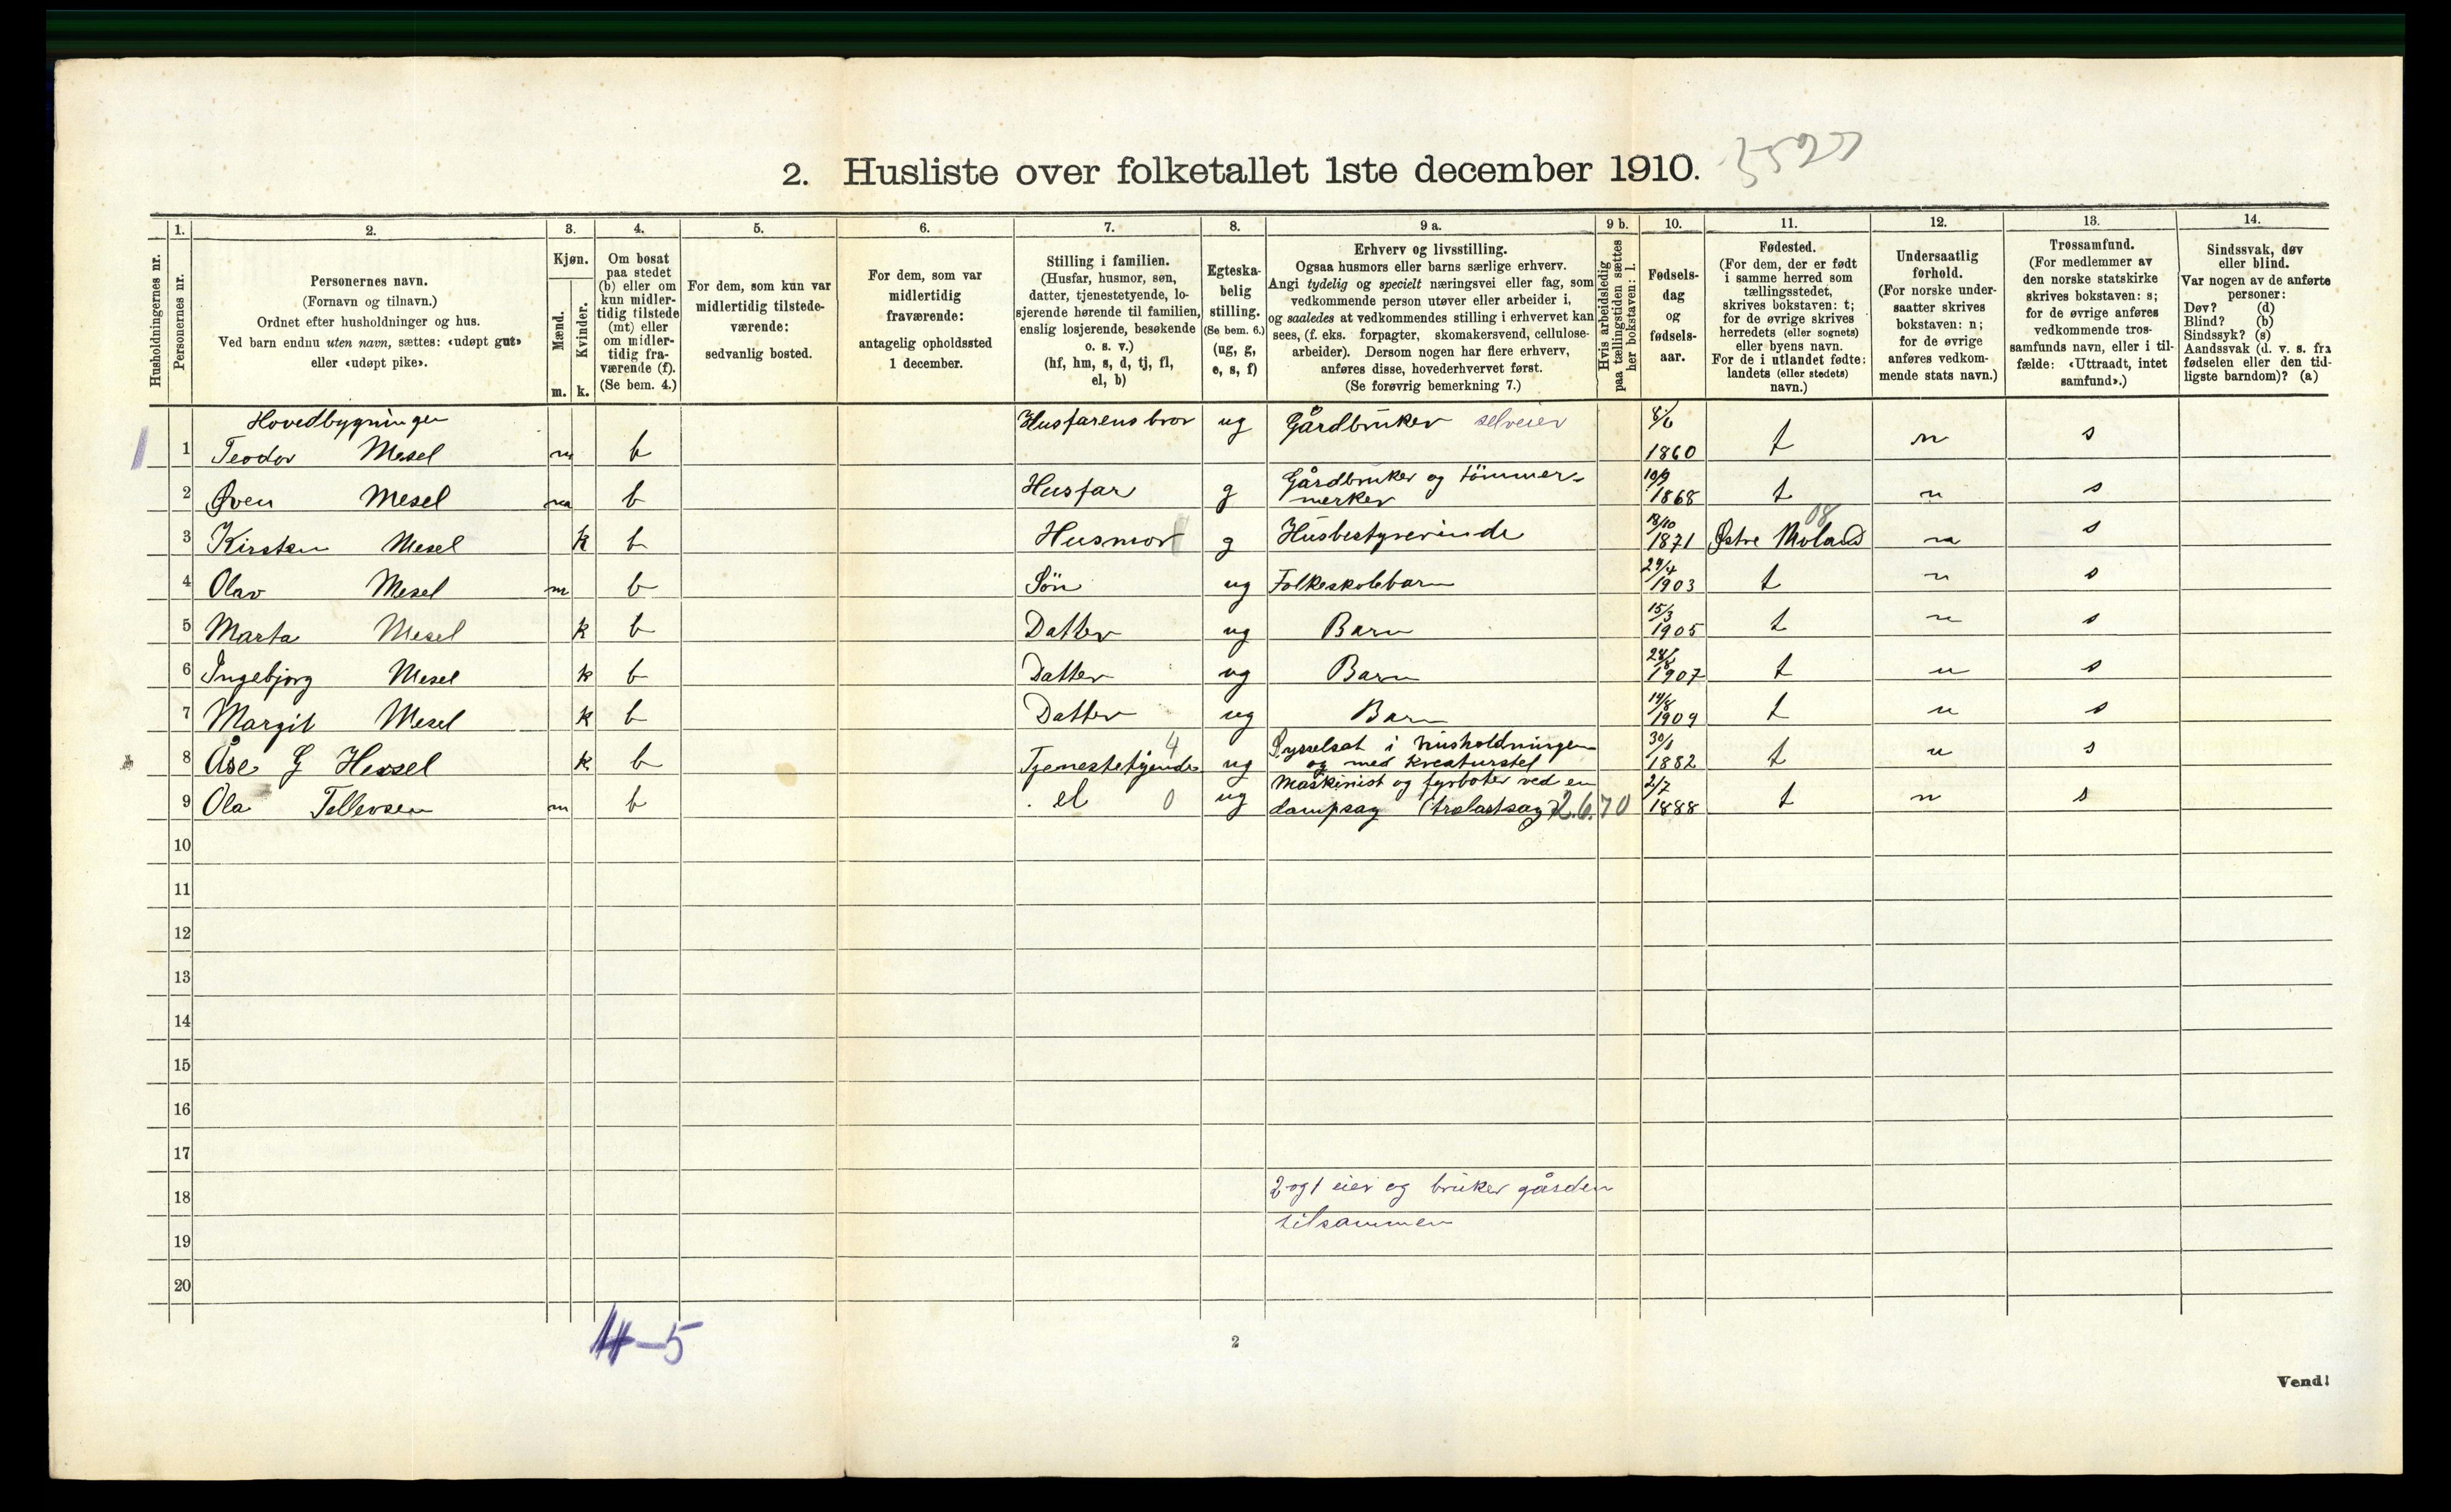 2. Husliste over folketallet 1ste december 1910.
Husholdningernes nr.
1.
Personernes nr.
2.
Personernes navn.
(Fornavn og tilnavn.)
Ordnet efter husholdninger og hus.
Ved barn endnu uten navn, sættes: «udøpt gut»
eller «udøpt pike».
3.
Kjøn.
Mænd.
Kvinder.
m. k.
4.
Om bosat
paa stedet
(b) eller om
kun midler-
tidig tilstede
(mt) eller
om midler-
tidig fra-
værende (f).
(Se bem. 4.)
5.
For dem, som kun var
midlertidig tilstede-
værende:
sedvanlig bosted.
6.
For dem, som var
midlertidig
fraværende:
antagelig opholdssted
1 december.
7.
Stilling i familien.
(Husfar, husmor, søn,
datter, tjenestetyende, lo-
sjerende hørende til familien,
enslig losjerende, besøkende
o. s. v.)
(hf, hm, s, d, tj, fl,
el, b)
8.
Egteska-
belig
stilling.
(Se bem. 6.)
(ug, g,
e, s, f)
9 a.
Erhverv og livsstilling.
Ogsaa husmors eller barns særlige erhverv.
Angi tydelig og specielt næringsvei eller fag, som
vedkommende person utøver eller arbeider i,
og saaledes at vedkommendes stilling i erhvervet kan
sees, (f. eks. forpagter, skomakersvend, cellulose-
arbeider). Dersom nogen har flere erhverv,
anføres disse, hovederhvervet først.
(Se forøvrig bemerkning 7.)
9 b.
Hvis arbeidsledig
paa tællingstiden sættes
her bokstaven: l.
10.
Fødsels-
dag
og
fødsels-
aar.
11.
Fødested.
(For dem, der er født
i samme herred som
tællingsstedet,
skrives bokstaven: t;
for de øvrige skrives
herredets (eller sognets)
eller byens navn.
For de i utlandet fødte:
landets (eller stedets)
navn.)
12.
Undersaatlig
forhold.
(For norske under-
saatter skrives
bokstaven: n;
for de øvrige
anføres vedkom-
mende stats navn.)
13.
Trossamfund.
(For medlemmer av
den norske statskirke
skrives bokstaven: s;
for de øvrige anføres
vedkommende tros-
samfunds navn, eller i til-
fælde: «Uttraadt, intet
samfund».)
14.
Sindssvak, døv
eller blind.
Var nogen av de anførte
personer:
Døv? (d)
Blind? (b)
Sindssyk? (s)
Aandssvak (d. v. s. fra
fødselen eller den tid-
ligste barndom)? (a)
Hovedbygningen
1 Teodor Mesel m b Husfarens bror ug Gårdbruker selveier 8/6 1860 t n s
2 Øven Mesel m b Husfar g Gårdbruker og tømmer-
merker 10/9 1868 t n s
3 Kirsten Mesel k b Husmor g Husbestyrerinde 18/10 1871 Østre Moland 08 n s
4 Olav Mesel m b Søn ug Folkeskolebarn 29/4 1903 t n s
5 Marta Mesel k b Datter ug Barn 15/3 1905 t n s
6 Ingebjørg Mesel k b Datter ug Barn 1907 t n s
7 Margit Mesel k b Datter ug Barn 14/8 1909 t n s
8 Åse G Hessel k b Tjenestetyende 4 ug Sysselsat i husholdningen
og med kreaturstel 1882 t n s
9 Ola Tellevsen m b el 0 ug Maskinist og fyrbøter ved en
dampsag (trælastsag) 2.6.70 2/7 1888 t n s
10
11
12
13
14
15
16
17
18 2 og 1 eier og bruker gården
tilsammen
19
20
4-5
2
Vend!